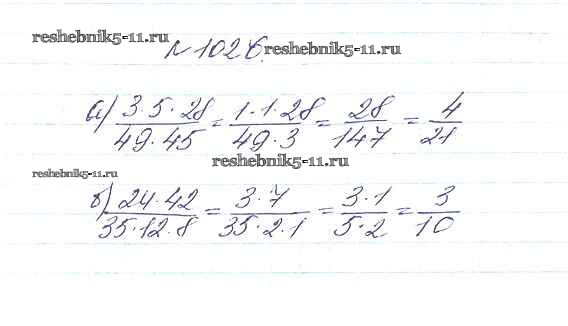 reshebnik5-11.ru
№1026. reshebnik5-11.ru
а) 3·5·28/49·45 = 1·1·28/49·3 = 28/147 = 4/21
reshebnik5-11.ru
reshebnik5-11.ru
б) 24·42/35·12·8 = 3·7/35·2·1 = 3·1/5·2 = 3/10